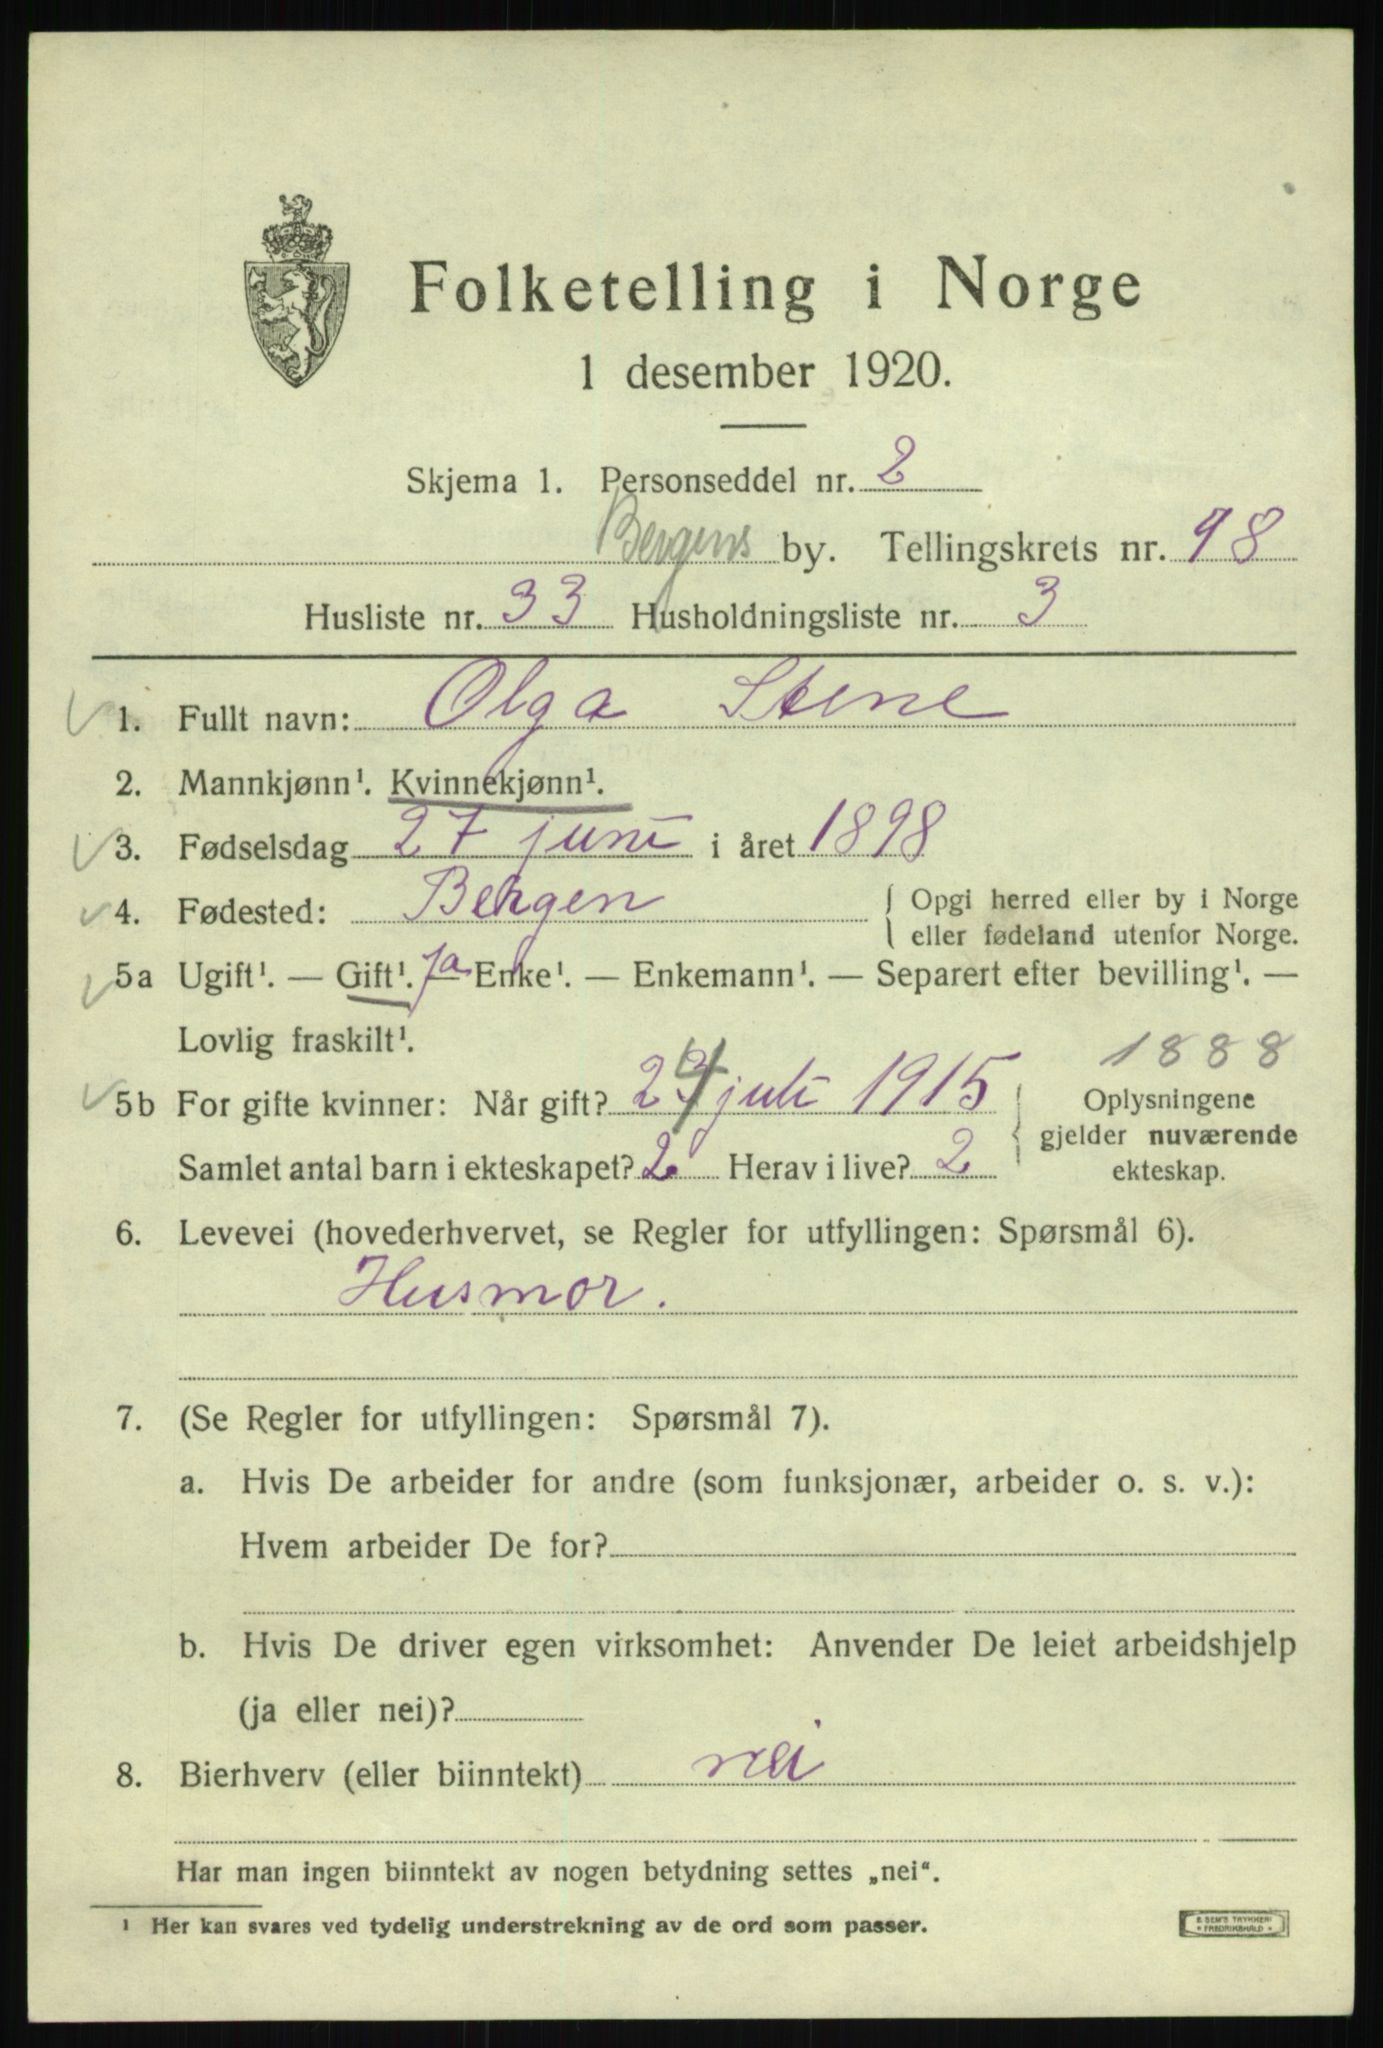 Folketelling i Norge
1 desember 1920.
Skjema 1. Personseddel nr. 2
Bergens by. Tellingskrets nr. 98
Husliste nr. 33 Husholdningsliste nr. 3
1. Fullt navn: Olga Stene
2. Mannkjønn¹. Kvinnekjønn¹.
3. Fødselsdag 27 juni i året 1898
4. Fødested: Bergen { Opgi herred eller by i Norge
eller fødeland utenfor Norge.
5a Ugift¹. — Gift¹. ja Enke¹. — Enkemann¹. — Separert efter bevilling¹. —
Lovlig fraskilt¹.
1888
5b For gifte kvinner: Når gift? 24 juli 1915 { Oplysningene
gjelder nuværende
Samlet antal barn i ekteskapet? 2 Herav i live? 2 ekteskap.
6. Levevei (hovederhvervet, se Regler for utfyllingen: Spørsmål 6).
Husmor.
7. (Se Regler for utfyllingen: Spørsmål 7).
a. Hvis De arbeider for andre (som funksjonær, arbeider o. s. v.):
Hvem arbeider De for?
b. Hvis De driver egen virksomhet: Anvender De leiet arbeidshjelp
(ja eller nei)?
8. Bierhverv (eller biinntekt) nei
Har man ingen biinntekt av nogen betydning settes „nei“.
¹ Her kan svares ved tydelig understrekning av de ord som passer.
E. SEM'S TRYKKERI
• FREDRIKSHALD •